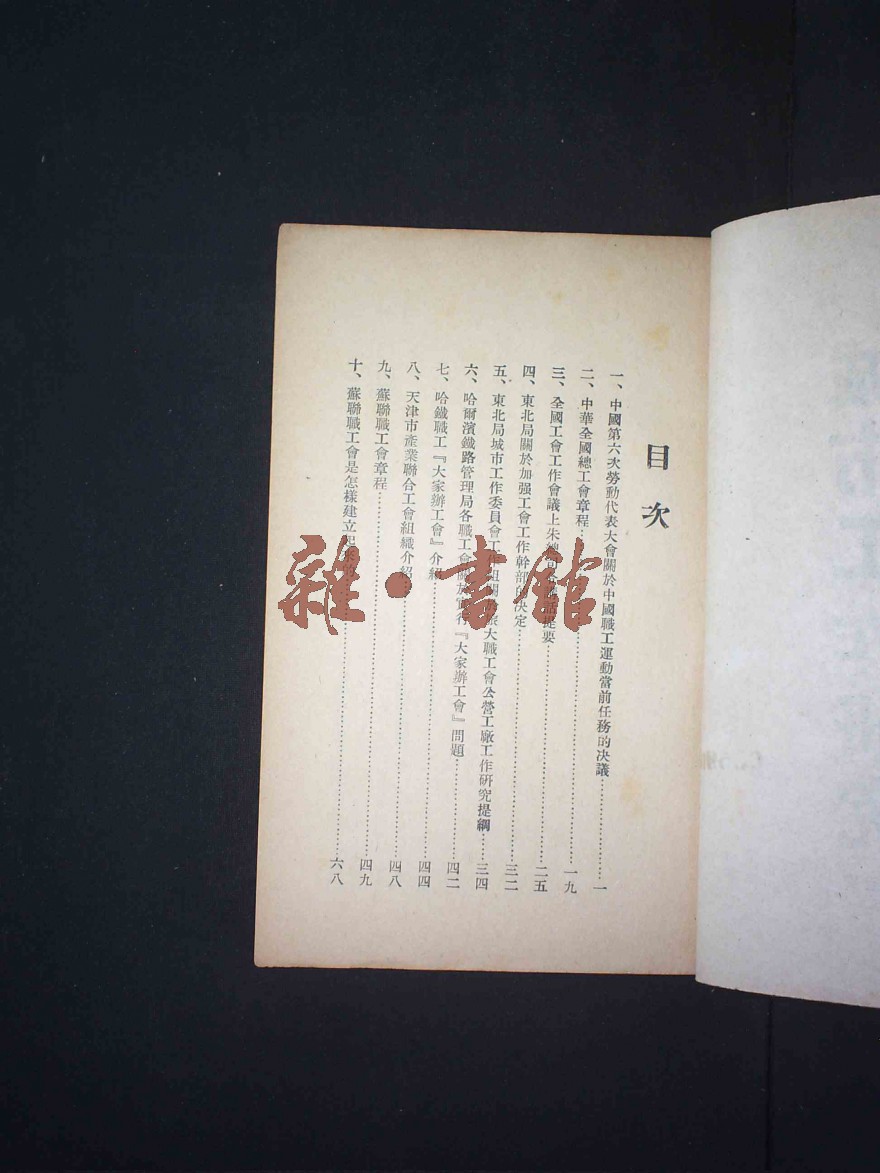 目次
一、中國第六次勞動代表大會關於中國職工運動當前任務的决議…………一
二、中華全國總工會章程…………一九
三、全國工會工作會議上朱總司令講話提要…………二五
四、東北局關於加强工會工作幹部的决定…………三二
五、東北局城市工作委員會工作組關 展大職工會公營工廠工作研究提綱……三四
六、哈爾濱鐵路管理局各職工會關於實行『大家辦工會』問題…………四二
七、哈鐵職工『大家辦工會』介紹…………四四
八、天津市產業聯合工會組織介紹…………四八
九、蘇聯職工會章程…………四九
十、蘇聯職工會是怎樣建立起來的…………六八
雜·書館